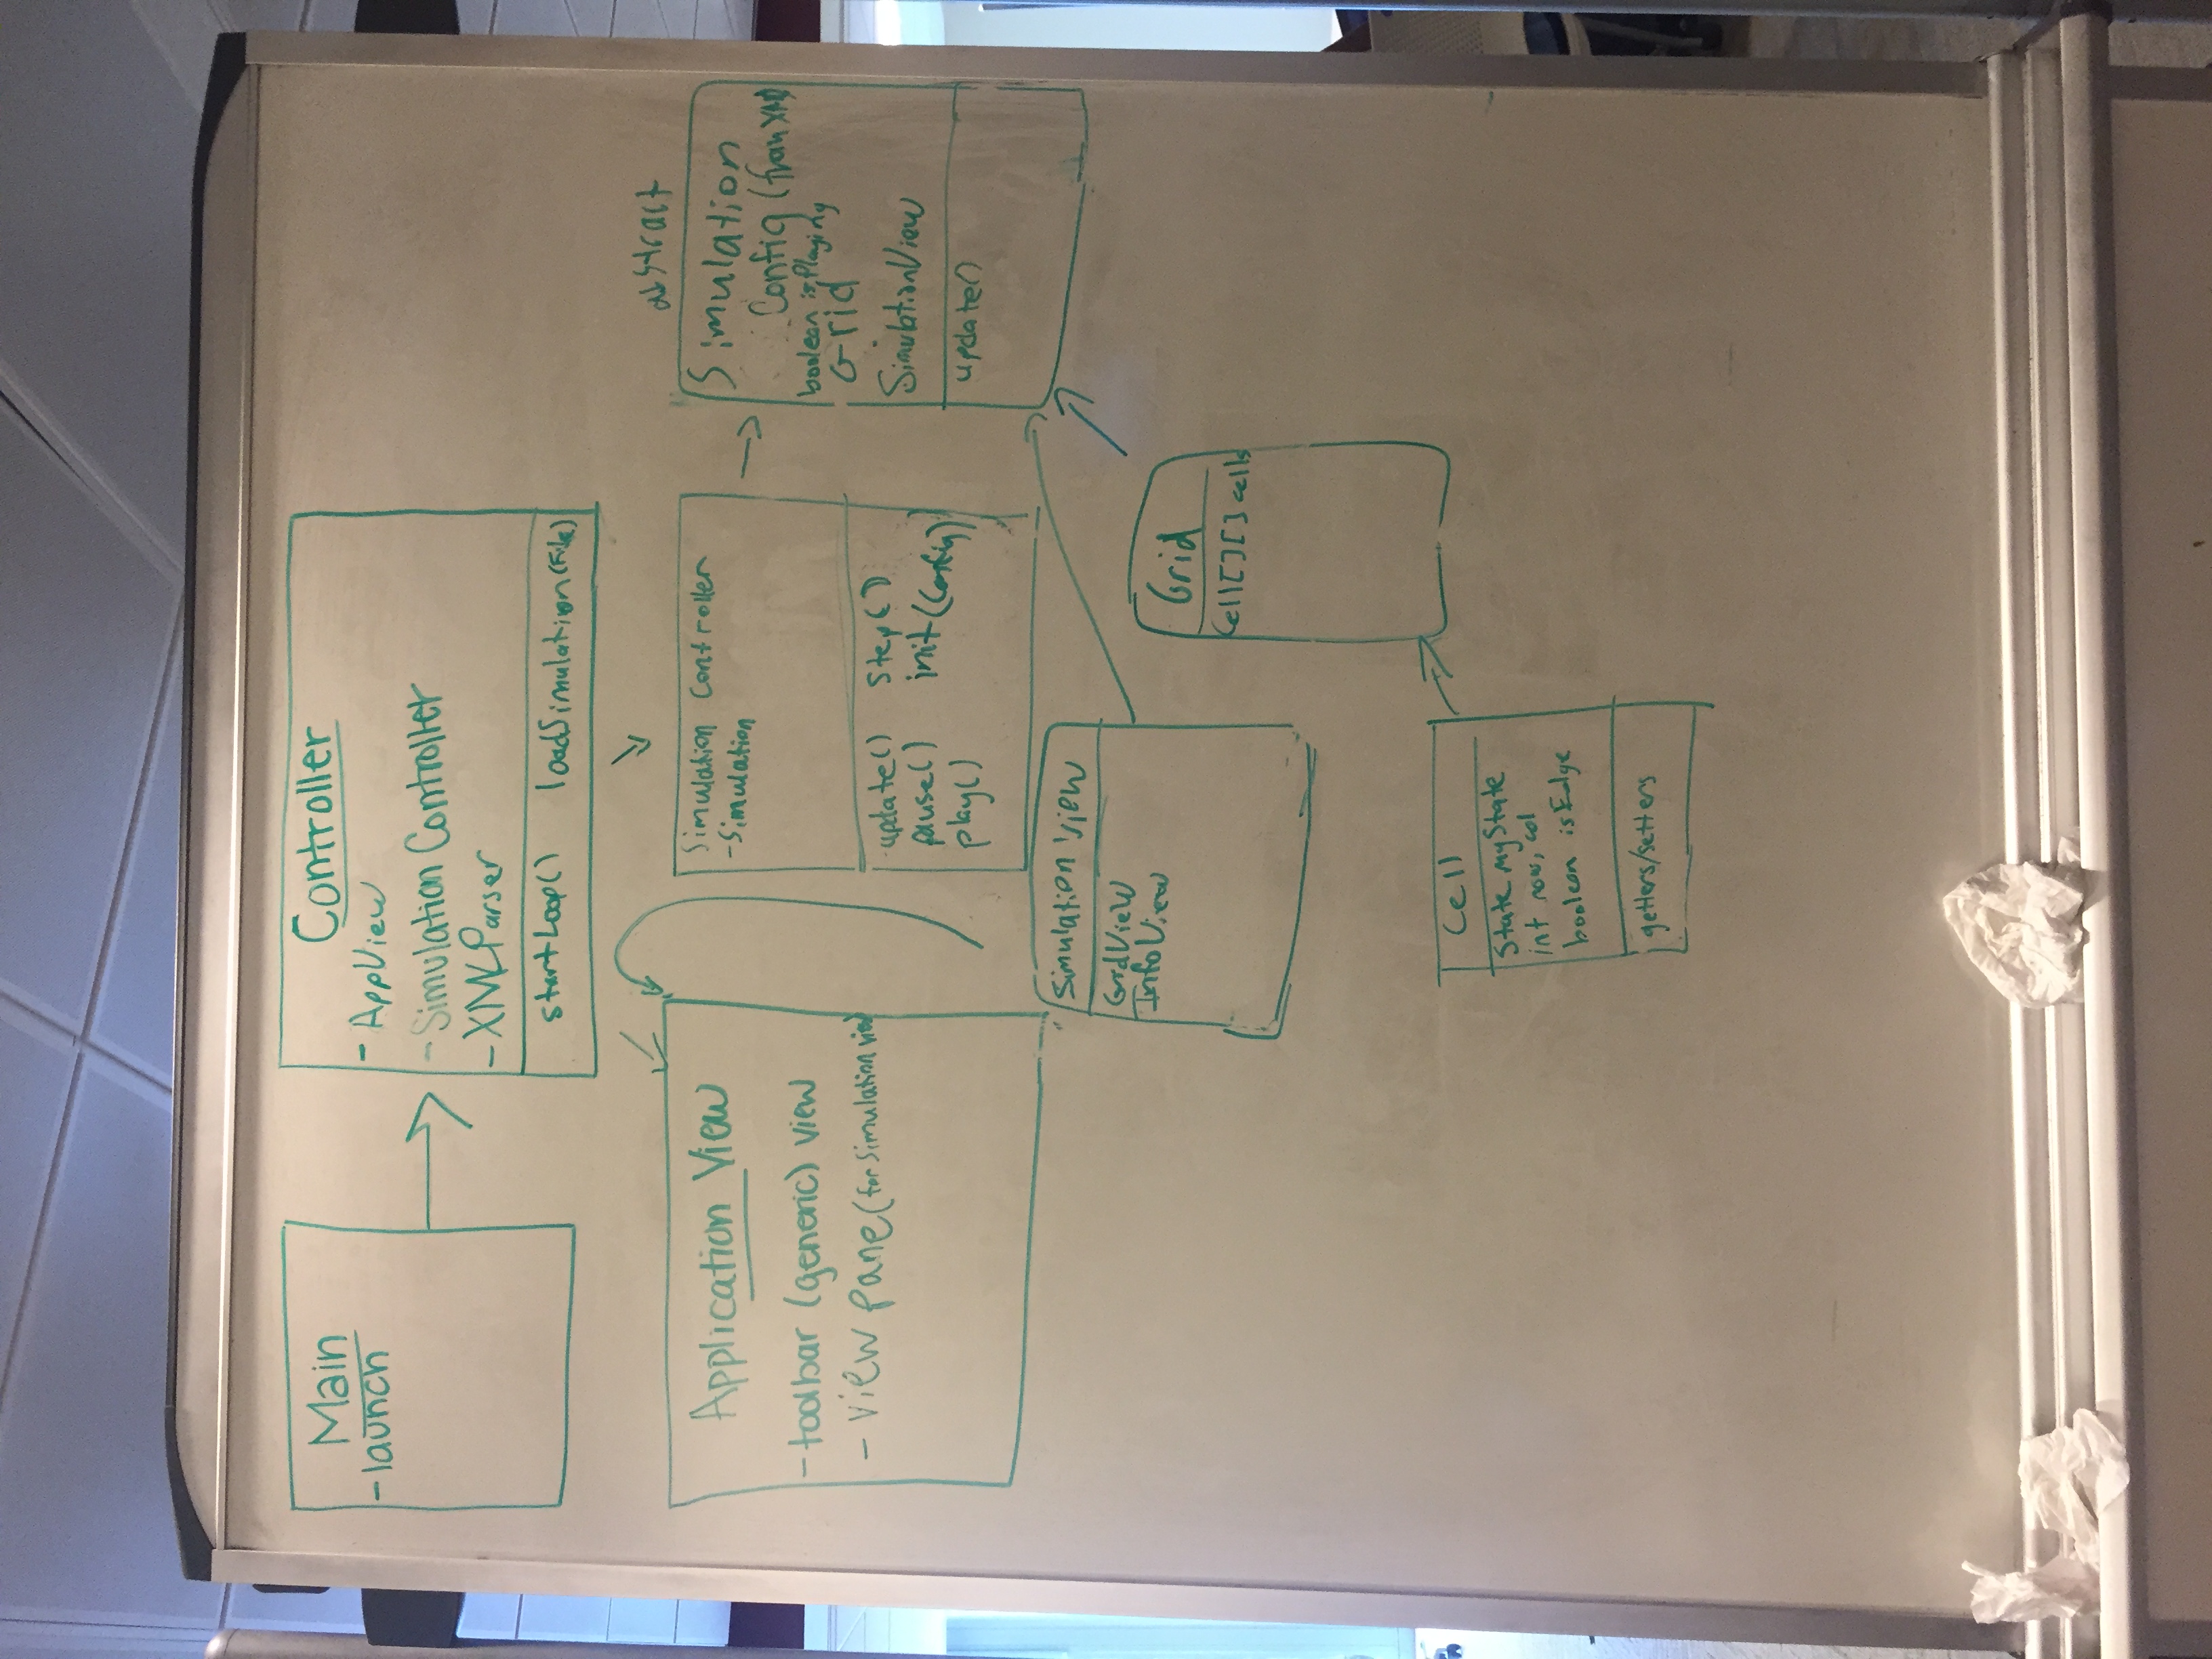 Main
- launch
Controller
- AppView
- Simulation Controller
- XMLParser
startLoop() loadSimulation(File)
Application View
- toolbar (generic) view
- view pane (for simulation view)
Simulation Controller
- Simulation
update() step()
pause() init(Config)
play()
abstract
Simulation
Config (from XML)
boolean isPlaying
Grid
SimulationView
update()
Simulation View
GridView
InfoView
Grid
Cell[][] cells
Cell
State myState
int row, col
boolean isEdge
getters/setters